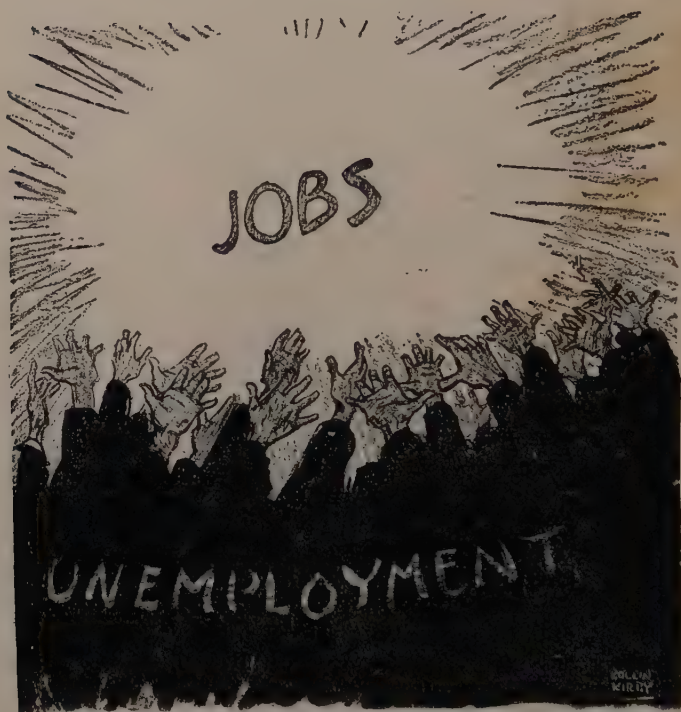 JOBS
UNEMPLOYMENT
ROLLIN
KIRBY